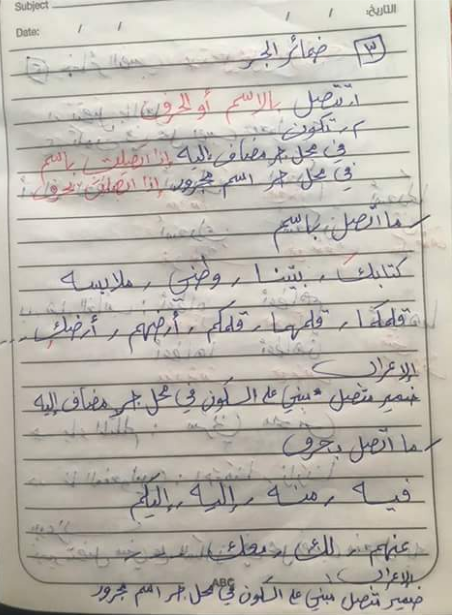 Subject
التاريخ: / /
Date: / /
٣ ضمائر الجر
١- تتصل بالاسم أو الحرف
٢- تكون
في محل جر مضاف إليه إذا اتصلت باسم
في محل جر اسم مجرور إذا اتصلت بحرف
ما اتصل باسم
كتابك ، بيتنا ، وطني ، ملابسه
قلمكما ، قلمهما ، قلمكم ، أرضهم ، أرضك
الإعراب
ضمير متصل مبني على السكون في محل جر مضاف إليه
ما اتصل بحرف
فيه ، منه ، إليه ، إليكم
عنهم ،
الإعراب
ABC
ضمير متصل مبني على السكون في محل جر اسم مجرور